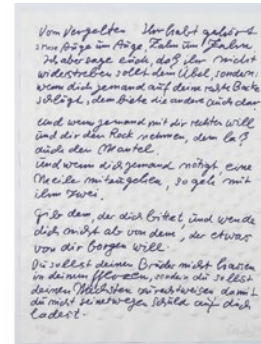 Vom Vergelten Ihr habt gehört
Auge um Auge, Zahn um Zahn.
Ich aber sage euch, daß ihr nicht
widerstreben sollt dem Übel, sondern:
wenn dich jemand auf deine rechte Backe
schlägt, dem biete die andere auch dar
und wenn jemand mit dir rechten will
und dir den Rock nehmen, dem laß
auch den Mantel.
und wenn dich jemand nötigt, eine
Meile mitzugehen, so geh mit
ihm zwei.
Gib dem, der dich bittet, und wende
dich nicht ab von dem, der etwas
von dir borgen will.
Du sollst deinen Bruder nicht hassen
in deinem Herzen, sondern du sollst
deinen Nächsten zurechtweisen damit
du nicht seinetwegen Schuld auf dich
ladest.